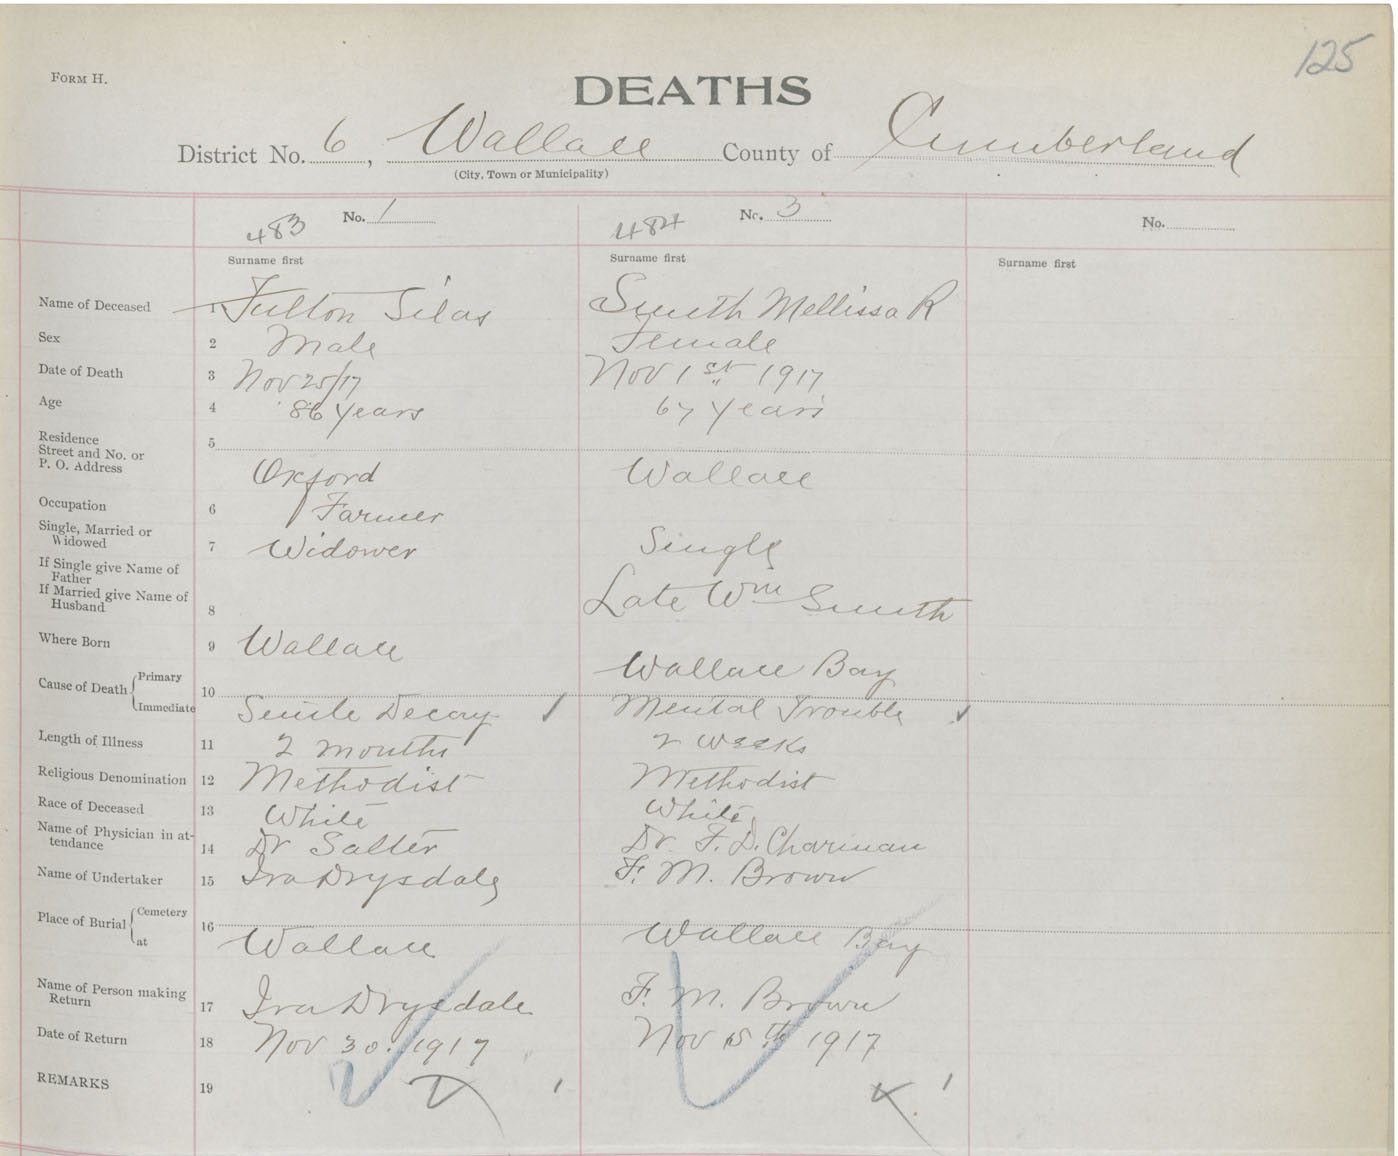 125
FORM H.
DEATHS
District No. 6, Wallace County of Cumberland
(City, Town or Municipality)
483 No. 1 484 No. 3 No.
Surname first Surname first Surname first
Name of Deceased 1 Fulton Silas Smith Mellissa R
Sex 2 Male Female
Date of Death 3 Nov 25/17 Nov 1st 1917
Age 4 86 Years 67 Years
Residence
Street and No. or 5
P. O. Address Oxford Wallace
Occupation 6 Farmer
Single, Married or
Widowed 7 Widower Single
If Single give Name of
Father
If Married give Name of
Husband 8 Late Wm Smith
Where Born 9 Wallace Wallace Bay
Cause of Death { Primary 10
Immediate Senile Decay Mental Trouble
Length of Illness 11 2 months 2 weeks
Religious Denomination 12 Methodist Methodist
Race of Deceased 13 White White
Name of Physician in at-
tendance 14 Dr Salter Dr. F. D. Charman
Name of Undertaker 15 Ira Drysdale F. M. Brown
Place of Burial { Cemetery 16
at Wallace Wallace Bay
Name of Person making
Return 17 Ira Drysdale F. M. Brown
Date of Return 18 Nov 30. 1917 Nov 15th 1917
REMARKS 19